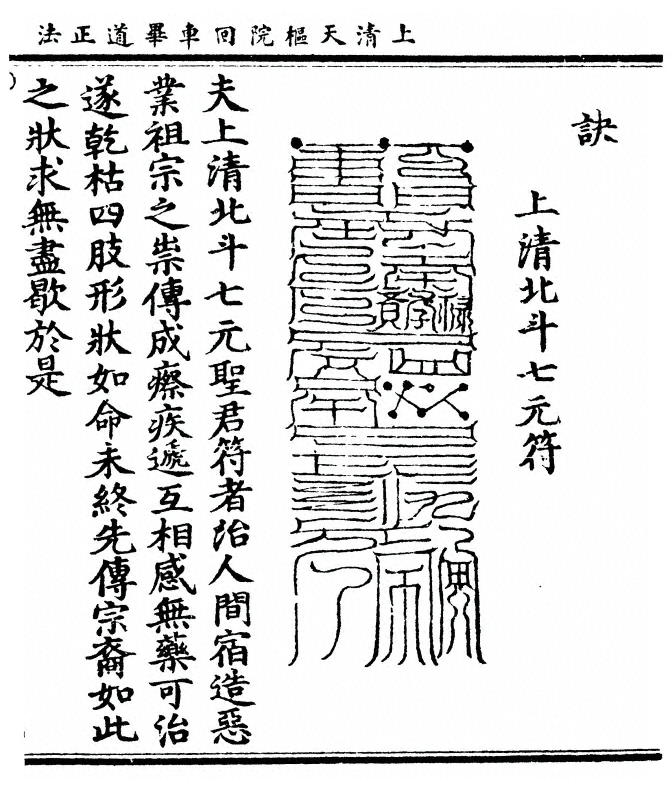 上清天樞院回車畢道正法
訣
上清北斗七元符
夫上清北斗七元聖君符者治人間宿造惡
業祖宗之祟傳成瘵疾遞互相感無藥可治
遂乾枯四肢形狀如命未終先傳宗裔如此
之狀求無盡歇於是